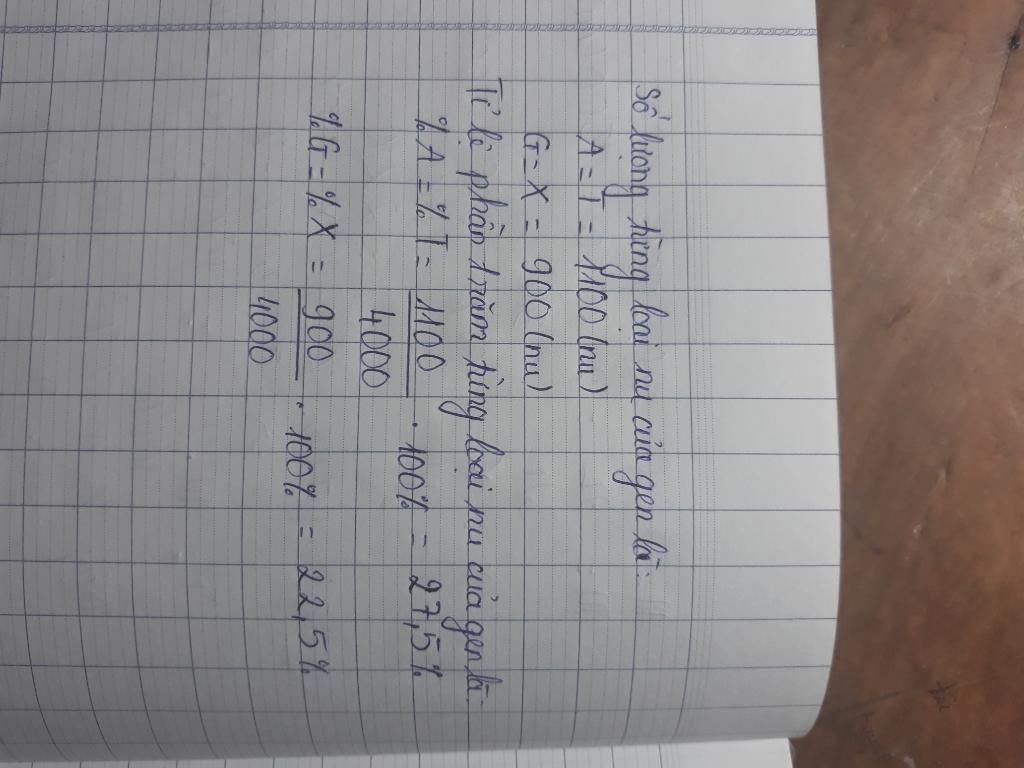 Số lượng từng loại nu của gen là:
A = T = 1100 (nu)
G = X = 900 (nu)
Tỉ lệ phần trăm từng loại nu của gen là:
%A = %T = 1100/4000 . 100% = 27,5%
%G = %X = 900/4000 . 100% = 22,5%